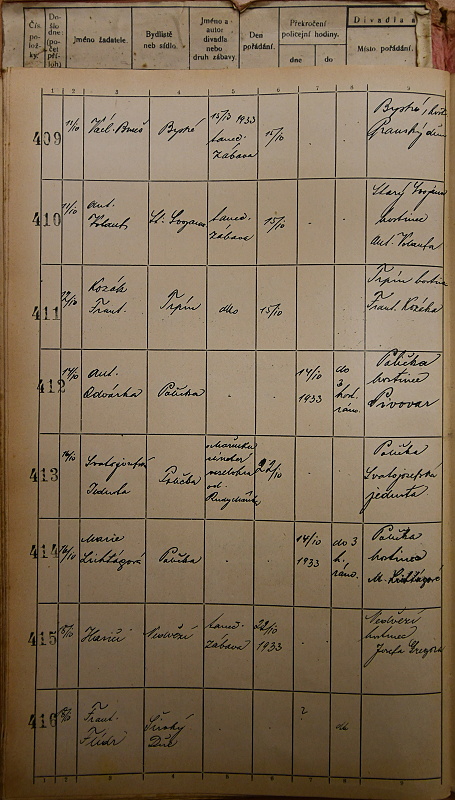 Čís. polož- ky.
Do- šlo dne: (po- čet pří- loh)
Jméno žadatele.
Bydliště neb sídlo.
Jméno a autor divadla nebo druh zábavy.
Den pořádání.
Překročení policejní hodiny.
dne
do
Divadla a
Místo pořádání.
1 2 3 4 5 6 7 8 9
409 11/10 Václ. Bureš Bystré 15/3 1933 taneč. zábava 15/10 Bystré,
410 11/10 Ant. Volauf St. Svojanov taneč. zábava 15/10 Starý Svojanov hostinec Ant. Volaufa
411 12/10 Kozák Frant. Trpín dto 15/10 Trpín hostinec Frant. Kozáka
412 14/10 Ant. Odvárka Polička 14/10 1933 do 3 hod. ráno. Polička hostinec Pivovar
413 16/10 Svatojosefská Jednota Polička veselohra od 22/10 Polička Svatojosefská jednota
414 16/10 Marie Polička 14/10 1933 do 3 h. ráno. Polička hostinec M.
415 Hasiči Nedvězí taneč. zábava 22/10 1933 Nedvězí hostinec Josefa
416 Frant. Flídr Široký Důl ?
1 2 3 4 5 6 7 8 9